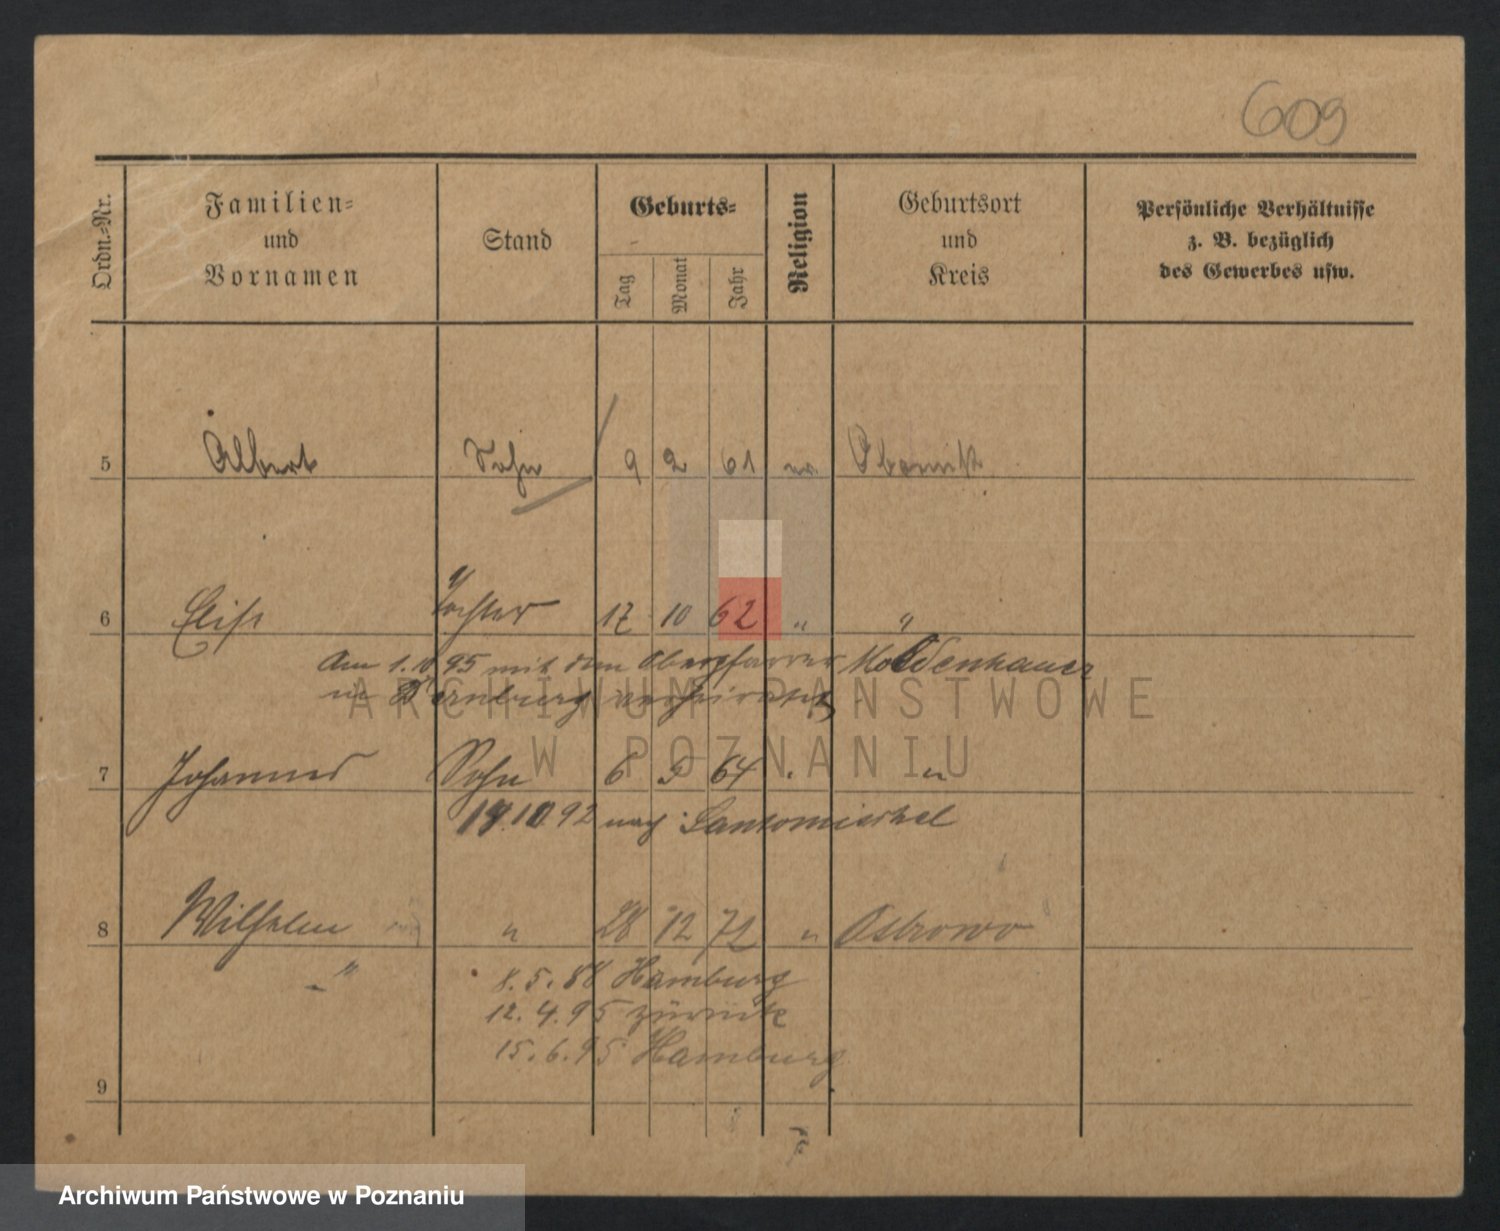 609
Ordn.-Nr.
Familien-
und
Vornamen
Stand
Geburts-
Tag
Monat
Jahr
Religion
Geburtsort
und
Kreis
Persönliche Verhältnisse
z. B. bezüglich
des Gewerbes usw.
5 Albert Sohn 9 2 61 ev Obornik
6 Elise Tochter 17 10 62 " "
Am 1. 95 mit dem Oberpfarrer Moldenhauer
in Bernburg verheiratet
7 Johannes Sohn 6 9 64 " "
19.10.92 nach Santomischel
8 Wilhelm " 28 12 72 " Ostrowo
- "
8.5.88 Hamburg
12.4.95 zurück
15.6.95 Hamburg
9
ARCHIWUM PAŃSTWOWE
W POZNANIU
Archiwum Państwowe w Poznaniu